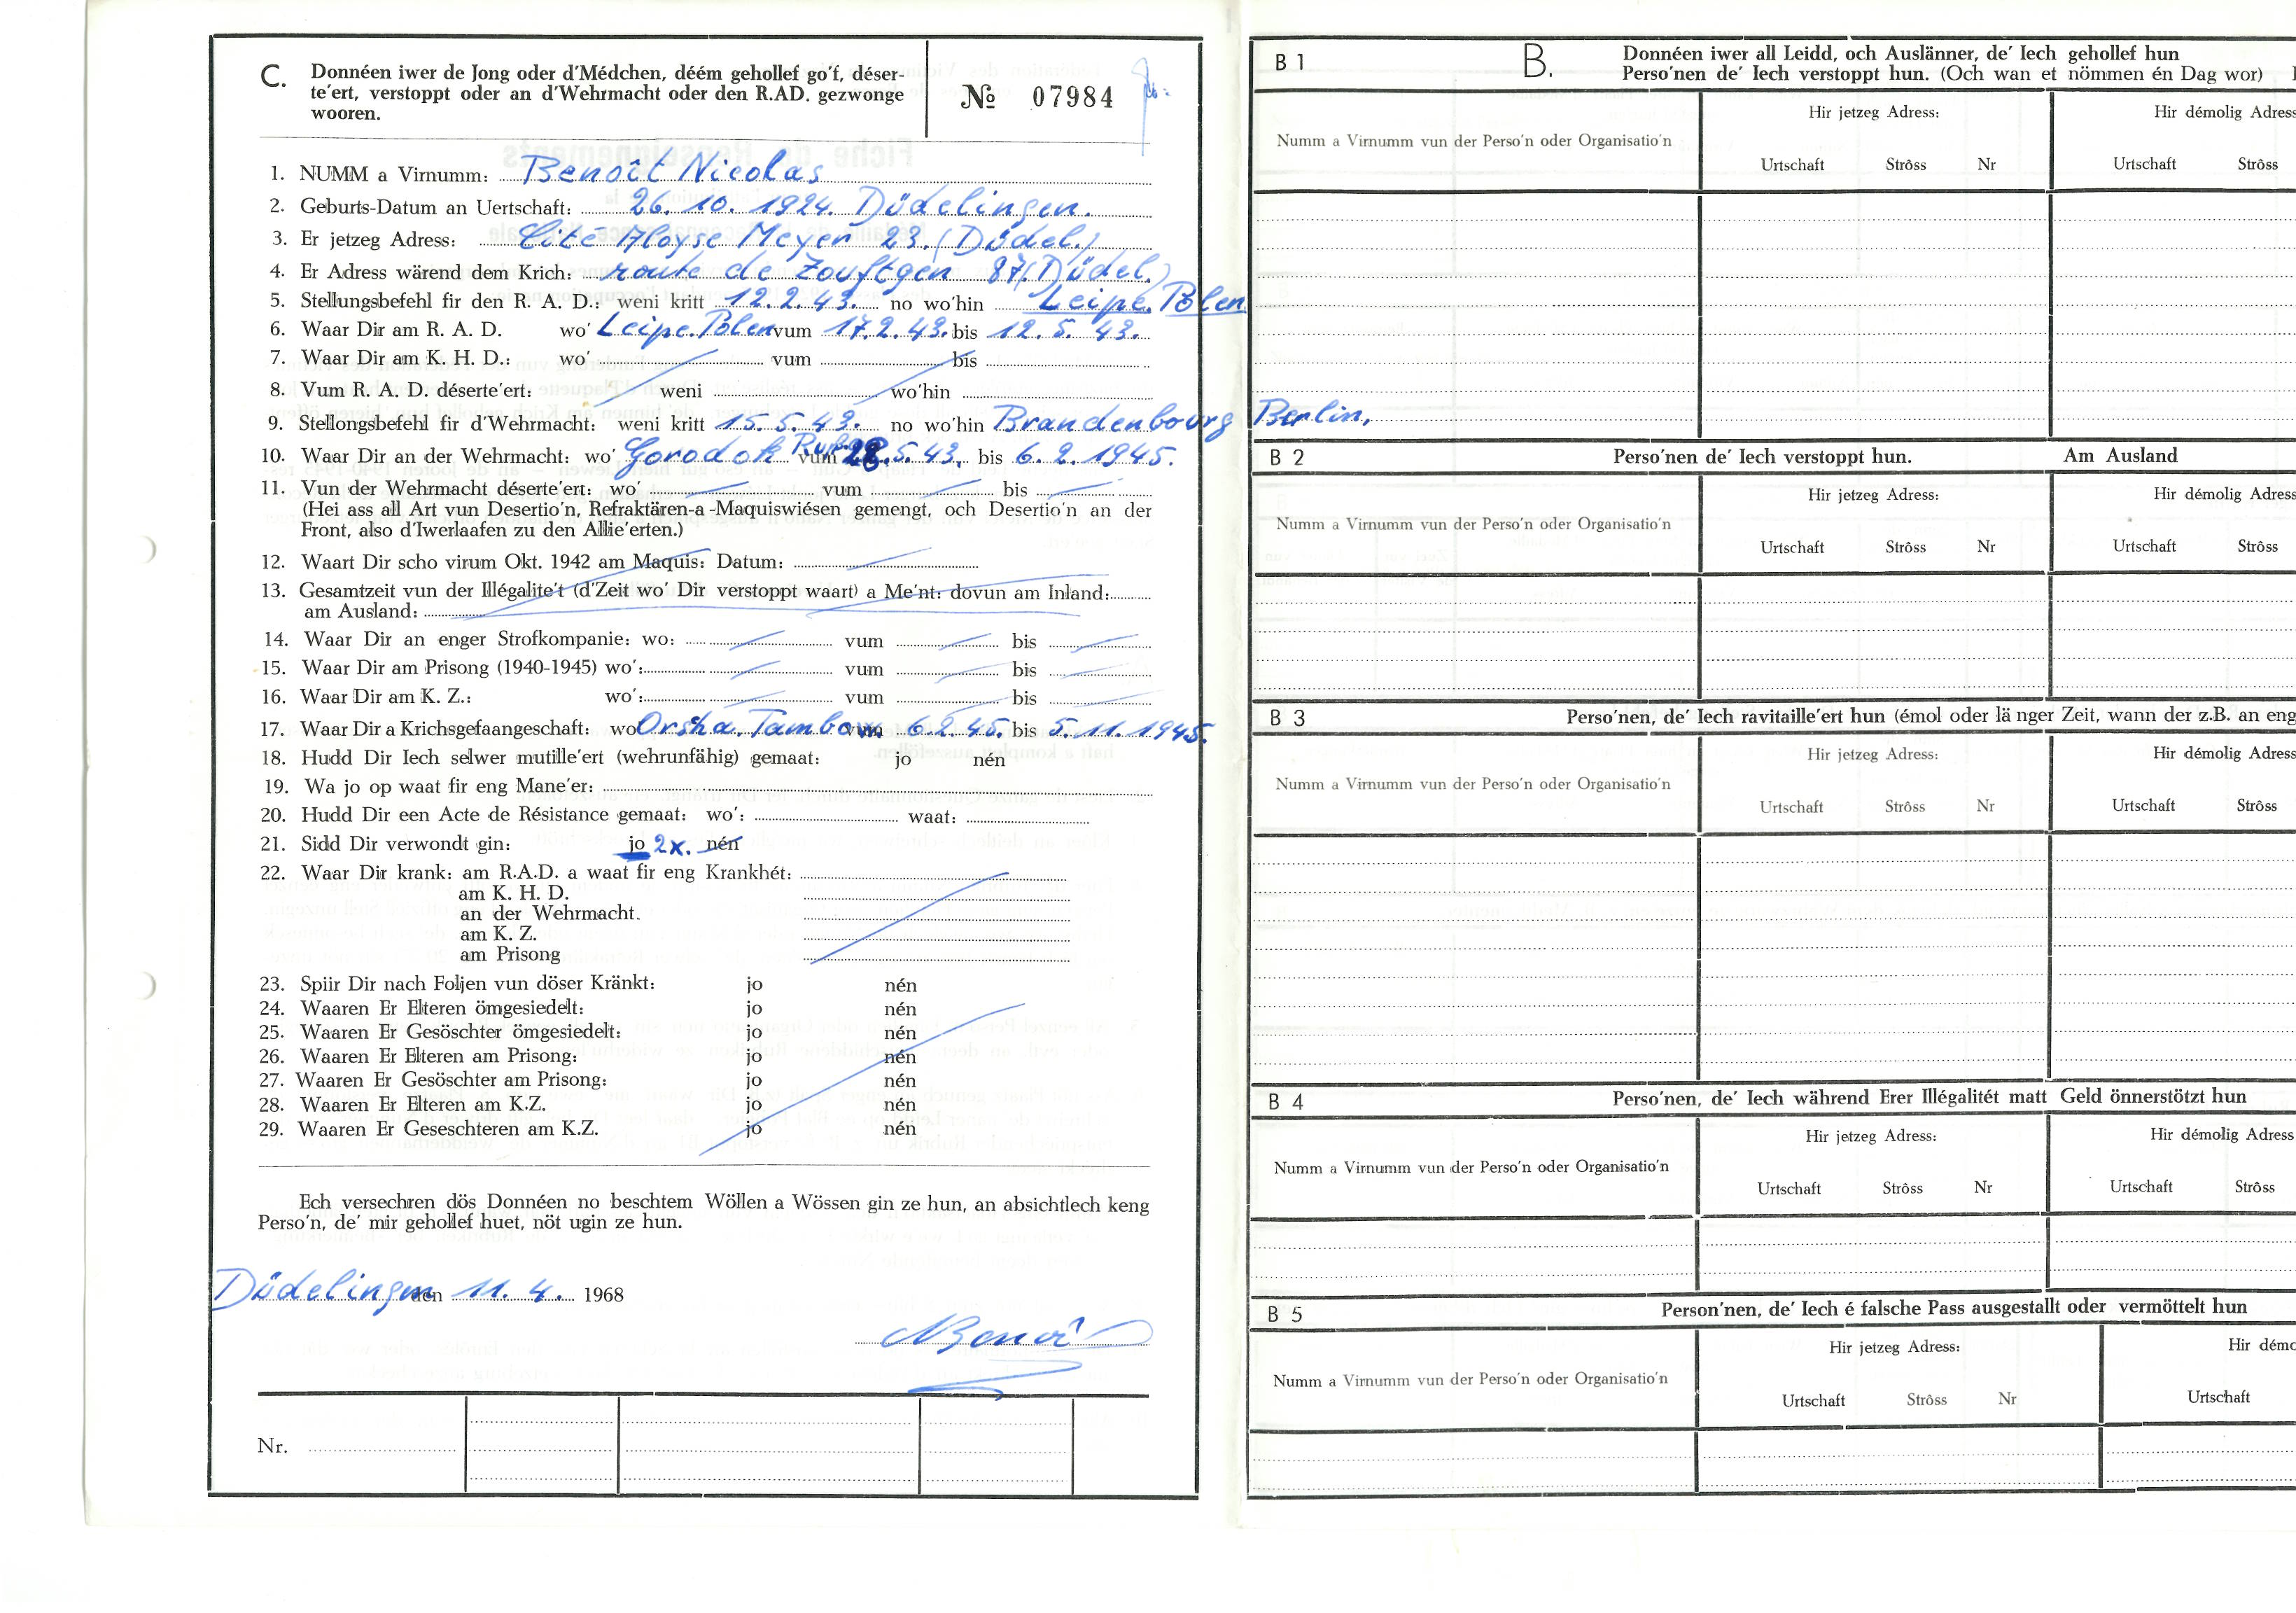 C. Donnéen iwer de Jong oder d'Médchen, déém gehollef go'f, déser-
te'ert, verstoppt oder an d'Wehrmacht oder den R.AD. gezwonge
wooren.
№ 07984
1. NUMM a Virnumm: Benoît Nicolas
2. Geburts-Datum an Uertschaft: 26. 10. 1924. Düdelingen.
3. Er jetzeg Adress: Cité Aloyse Meyer 23. (Düdel.)
4. Er Adress wärend dem Krich: route de Zouftgen 87 (Düdel.)
5. Stellungsbefehl fir den R. A. D.: weni kritt 12.2.43. no wo'hin Leipe. Polen
6. Waar Dir am R. A. D. wo' Leipe. Polen vum 17.2.43. bis 12. 5. 43.
7. Waar Dir am K. H. D.: wo' vum bis
8. Vum R. A. D. déserte'ert: weni wo'hin
9. Stellongsbefehl fir d'Wehrmacht: weni kritt 15. 5. 43. no wo'hin Brandenbourg Berlin,
10. Waar Dir an der Wehrmacht: wo' Gorodok vum 28.5.43. bis 6. 2. 1945.
11. Vun der Wehrmacht déserte'ert: wo' vum bis
(Hei ass all Art vun Desertio'n, Refraktären-a -Maquiswiésen gemengt, och Desertio'n an der
Front, also d'Iwerlaafen zu den Allie'erten.)
12. Waart Dir scho virum Okt. 1942 am Maquis: Datum:
13. Gesamtzeit vun der Illégalite't (d'Zeit wo' Dir verstoppt waart) a Me'nt: dovun am Inland:
am Ausland:
14. Waar Dir an enger Strofkompanie: wo: vum bis
15. Waar Dir am Prisong (1940-1945) wo': vum bis
16. Waar Dir am K. Z.: wo': vum bis
17. Waar Dir a Krichsgefaangeschaft: wo Orsha. Tambow vum 6.2.45. bis 5. 11. 1945.
18. Hudd Dir Iech selwer mutille'ert (wehrunfähig) gemaat: jo nén
19. Wa jo op waat fir eng Mane'er:
20. Hudd Dir een Acte de Résistance gemaat: wo': waat:
21. Sidd Dir verwondt gin: jo 2x. nén
22. Waar Dir krank: am R.A.D. a waat fir eng Krankhét:
am K. H. D.
an der Wehrmacht.
am K. Z.
am Prisong
23. Spiir Dir nach Foljen vun döser Kränkt: jo nén
24. Waaren Er Elteren ömgesiedelt: jo nén
25. Waaren Er Gesöschter ömgesiedelt: jo nén
26. Waaren Er Elteren am Prisong: jo nén
27. Waaren Er Gesöschter am Prisong: jo nén
28. Waaren Er Elteren am K.Z. jo nén
29. Waaren Er Geseschteren am K.Z. jo nén
Ech versechren dös Donnéen no beschtem Wöllen a Wössen gin ze hun, an absichtlech keng
Perso'n, de' mir gehollef huet, nöt ugin ze hun.
Düdelingen den 11. 4. 1968
NBenoî
Nr.
B 1
B. Donnéen iwer all Leidd, och Auslänner, de' Iech gehollef hun
Perso'nen de' Iech verstoppt hun. (Och wan et nömmen én Dag wor)
Hir jetzeg Adress: Hir démolig Adress
Numm a Virnumm vun der Perso'n oder Organisatio'n
Urtschaft Strôss Nr Urtschaft Strôss
B 2 Perso'nen de' Iech verstoppt hun. Am Ausland
Hir jetzeg Adress: Hir démolig Adress
Numm a Virnumm vun der Perso'n oder Organisatio'n
Urtschaft Strôss Nr Urtschaft Strôss
B 3 Perso'nen, de' Iech ravitaille'ert hun (émol oder länger Zeit, wann der z.B. an eng
Hir jetzeg Adress: Hir démolig Adress
Numm a Virnumm vun der Perso'n oder Organisatio'n
Urtschaft Strôss Nr Urtschaft Strôss
B 4 Perso'nen, de' Iech während Erer Illégalitét matt Geld önnerstötzt hun
Hir jetzeg Adress: Hir démolig Adress
Numm a Virnumm vun der Perso'n oder Organisatio'n
Urtschaft Strôss Nr Urtschaft Strôss
B 5 Person'nen, de' Iech é falsche Pass ausgestallt oder vermöttelt hun
Hir jetzeg Adress: Hir démo
Numm a Virnumm vun der Perso'n oder Organisatio'n
Urtschaft Strôss Nr Urtschaft